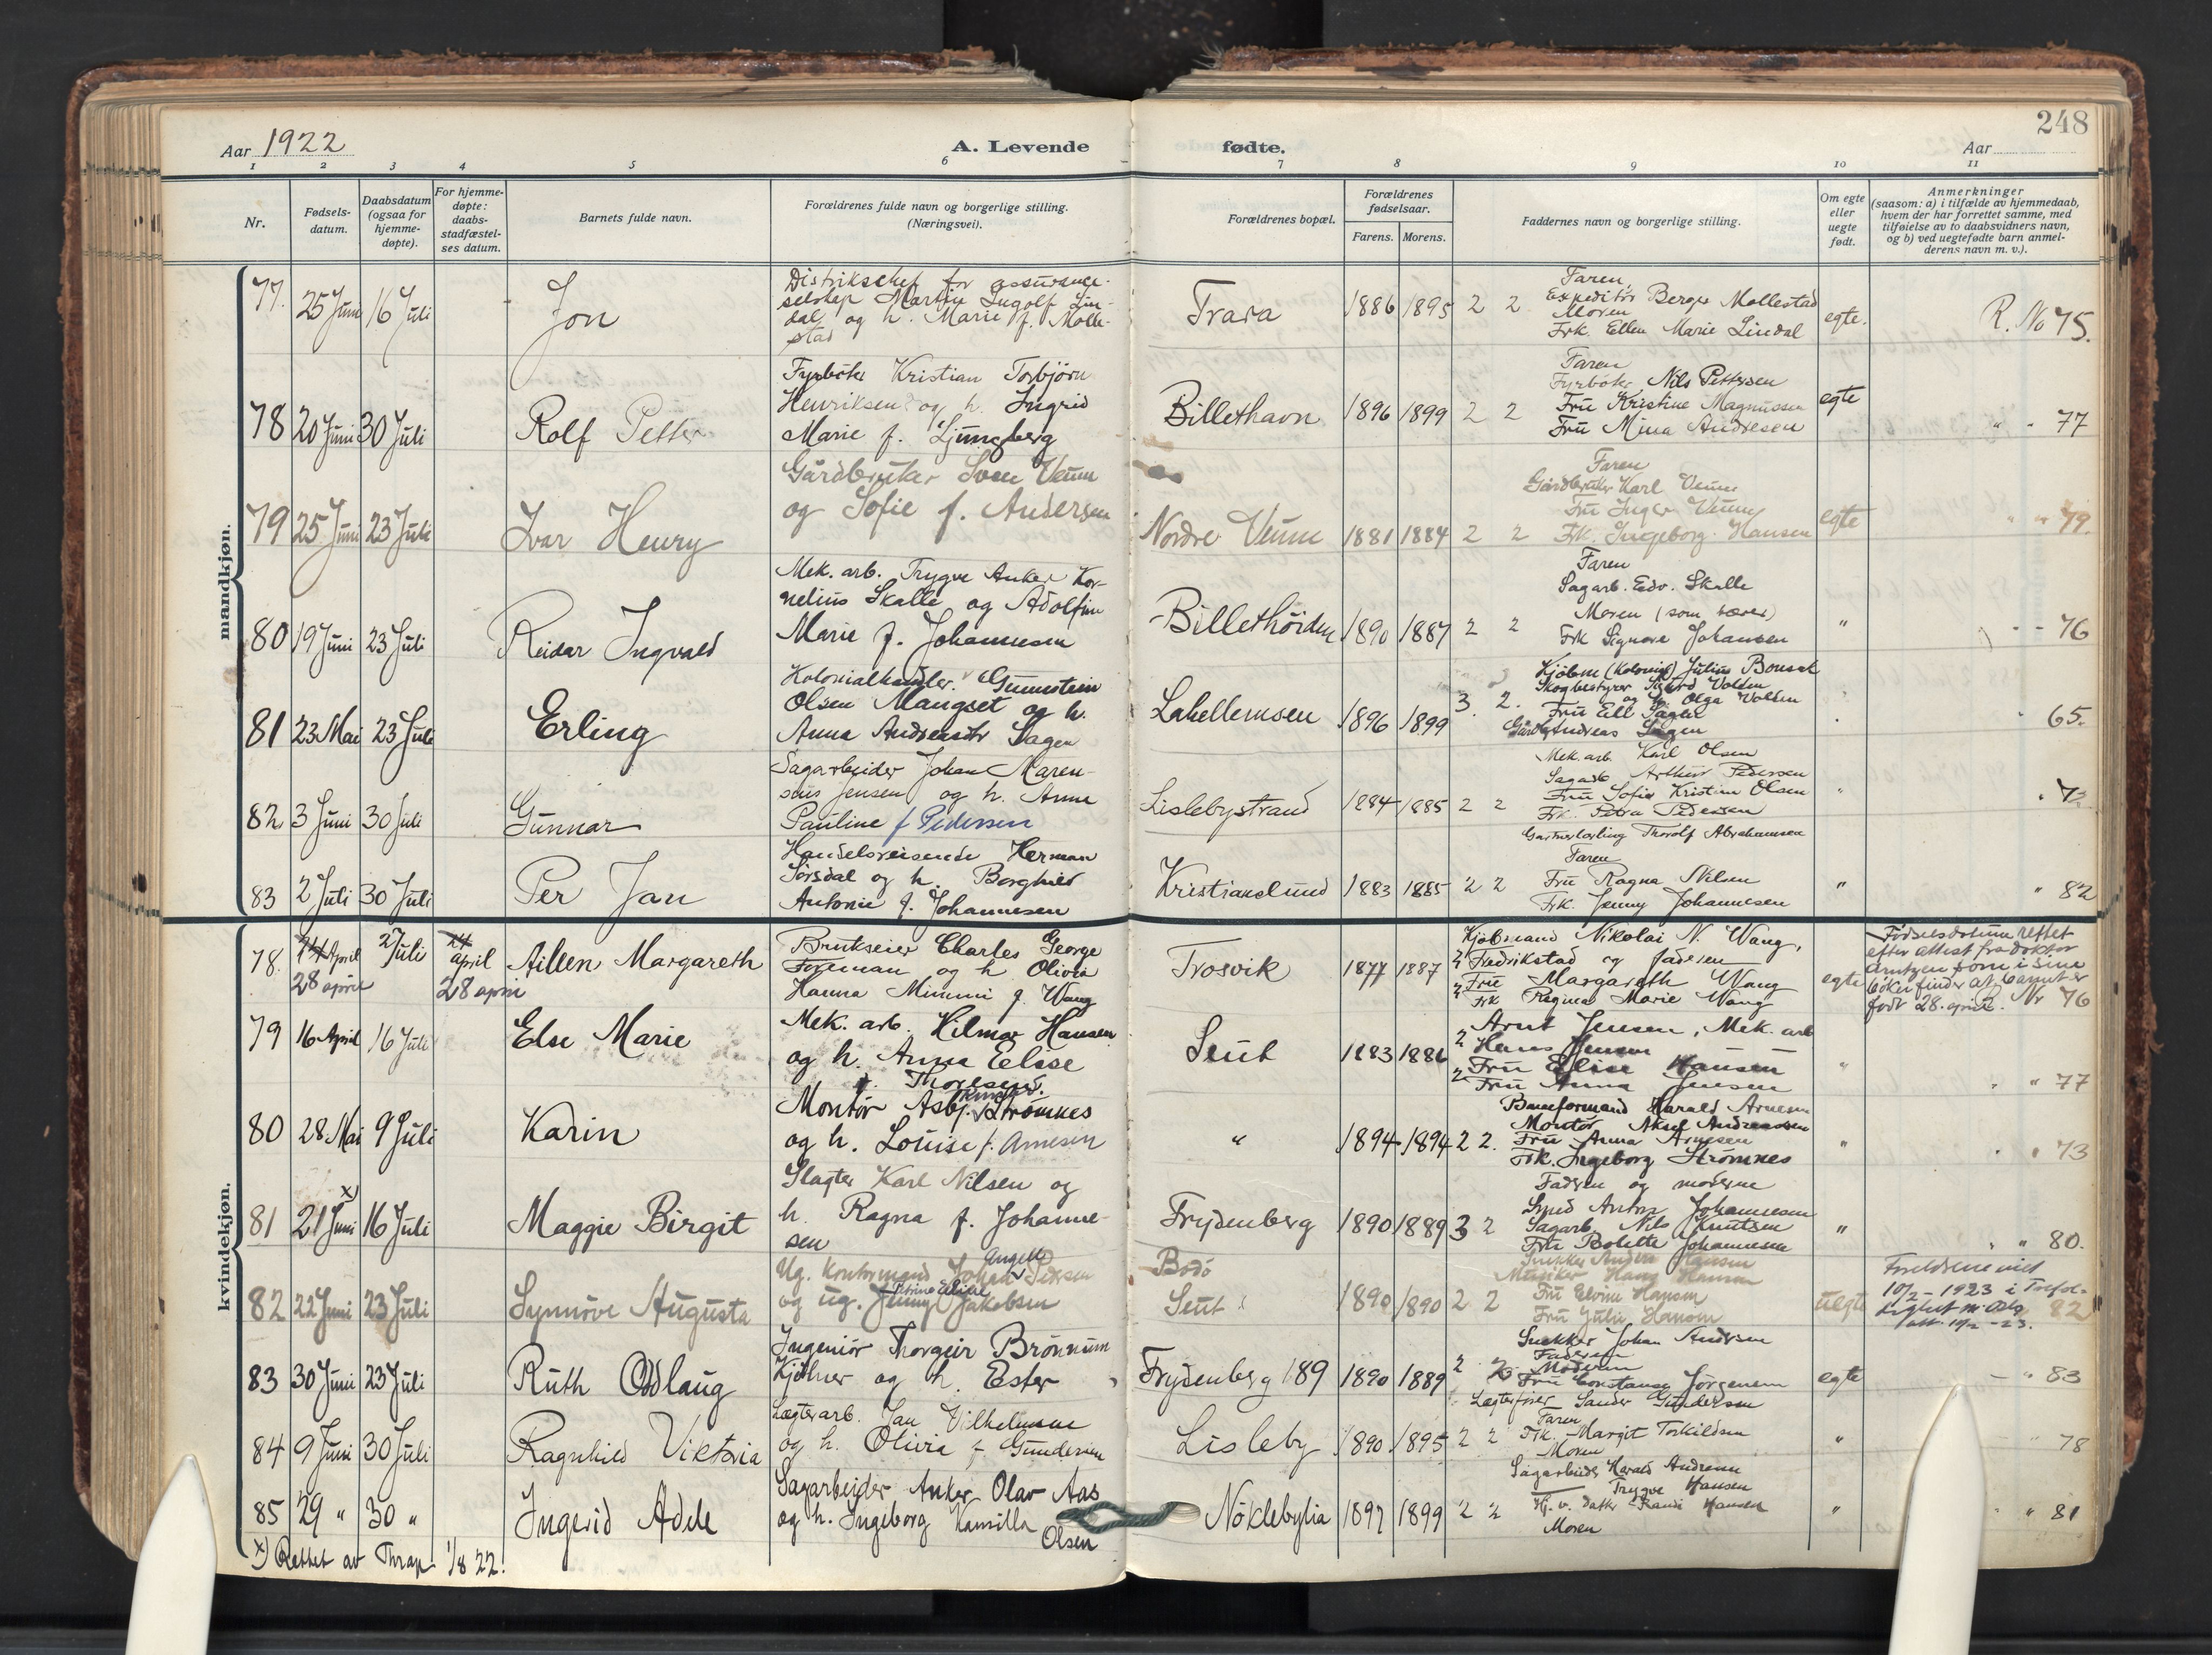 248
Aar 1922 A. Levende fødte. Aar
1 2 3 4 5 6 7 8 9 10 11
Nr.
Fødsels-
datum.
Daabsdatum
(ogsaa for
hjemme-
døpte).
For hjemme-
døpte:
daabs-
stadfæstel-
ses datum.
Barnets fulde navn.
Forældrenes fulde navn og borgerlige stilling.
(Næringsvei).
Forældrenes bopæl.
Forældrenes
fødselsaar.
Farens. Morens.
Faddernes navn og borgerlige stilling.
Om egte
eller
uegte
født.
Anmerkninger
(saasom: a) i tilfælde av hjemmedaab,
hvem der har forrettet samme, med
tilføielse av to daabsvidners navn,
og b) ved uegtefødte barn anmel-
derens navn m. v.).
mandkjøn.
77. 25 Juni 16 Juli Jon
Distrikschef for assurance-
selskap Martin Ingolf Lin-
dal og h. Marie f. Molle-
stad
Trara 1886 1895 2 2
Faren
Expeditør Berger Mollestad
Moren
Frk. Ellen Marie Lindal
egte. R. No 75.
78 20 Juni 30 Juli Rolf Petter
Fyrbøter Kristian Torbjörn
Henriksen og h. Ingrid
Marie f. Ljungberg
Billethavn 1896 1899 2 2
Faren
Fyrbøter Nils Pettersen
Fru Kristine Magnussen
Fru Mina Andresen
egte " " 77
79 25 Juni 23 Juli Ivar Henry
Gårdbruker Sven Veum
og Sofie f. Andersen
Nordre Veum 1881 1884 2 2
Faren
Gårdbruker Karl Veum
Fru Inger Veum
Frk. Ingeborg Hansen
egte " " 79.
80 19 Juni 23 Juli Reidar Ingvald
Mek. arb. Trygve Anker Kor-
nelius Skalle og Adolfine
Marie f. Johannesen
Billethöiden 1890 1887 2 2
Faren
Sagarb. Edv. Skalle
Moren (som bærer)
Frk Signora Johansen
" 76
81 23 Mai 23 Juli Erling
Kolonialhandler Gunnstein
Olsen Mangset og h.
Anna Andreasdtr Sagen
Lahellemsen 1896 1899 3. 2.
Kjöbm (Kolonial) Julius
Skogbestyrer Sigurd Volden
og Olga Volden
Fru Ell
Andreas Sagen
65.
82 3 Juni 30 Juli Gunnar
Sagarbeider Johan Maren-
sius Jensen og h. Anne
Pauline f Pedersen
Lislebystrand 1884 1885 2 2
Mek. arb. Karl Olsen
Sagarb Arthur Pedersen
Fru Sofie Kristine Olsen
Frk. Petra Pedersen
"
83 2 Juli 30 Juli Per Jan
Handelsreisende Herman
Sörsdal og h. Borghild
Antonie f. Johannesen
Kristianslund 1883 1885 2 2
Gartnerlærling Thorolf Abrahamsen
Faren
Fru Ragna Nilsen
Frk. Jenny Johannesen
" " 82
kvindekjøn.
78. 24 April 2 Juli 24 april Aillen Margareth
28 april 28 april
Brukseier Charles George
Foreman og h Olivia
Hanna Mimmi f. Wang
Trosvik 1877 1887
Kjöbmand Nikolai N. Wang,
Fredrikstad og faderen
Fru Margareth Wang
Frk Ragna Marie Wang
egte
Födselsdatum rettet
efter attest fra doktor
Arntzen som i sine
böker finder at barnet er
född 28. april. R. Nr 76
79 16 April 16 Juli Else Marie
Mek. arb. Hilmar Hansen
og h. Anna Eelise
f. Thoresen
Seut 1883 1886
Arnt Jensen, Mek. arb
Hans Jensen
Fru Elise Hansen
Fru Anna Jensen
" " " 77
80 28 Mai 9 Juli Karin
Montör Asbj. Strömnes
og h. Louise f. Arnesen
" 1894 1894 2 2.
Banformand Harald Arnesen
Montör Aksel Andreassen
Fru Anna Arnesen
Frk. Ingeborg Strömnes
" " 73
81 21 Juni x) 16 Juli Maggie Birgit
Slagter Karl Nilsen og
h. Ragna f. Johanne-
sen
Frydenberg 1890 1889 3 2
Fadren og moderne
Smed Anton Johannesen
Sagarb. Nils Knutsen
Fru Bolette Johannesen
" " 80.
82 22 Juni 23 Juli Synnöve Augusta
Ug. Kontormand Johan Angell Pedersen
og ug. Jenny Jakobsen
Bodö
Seut 1890 1890 2 2
Snekker Anders Hansen
Musiker Hans Hansen
Fru Elvine Hansen
Fru Julie Hansen
uegte
Foreldrene viet
10/2 - 1923 i Trefol-
82
83 30 Juni 23 Juli Ruth Oddlaug
Ingeniör Thorgeir Brönnum
Kjölner og h. Ester
Frydenberg 189 1890 1889 2
Snekker Johan Andersen
Faderen
Moderen
Fru Constance Jörgensen
egte " 83
84 9 Juni 30 Juli Ragnhild Viktoria
Lægterarb. Jan Vilhelmsen
og h. Olivia f Gundersen
Lisleby 1890 1895 2 2
Lægterfører Sander Gundersen
Faren
Frk. Margit Torkildsen
Moren
" 78
85 29 " 30 " Ingerid Adele
Sagarbeider Anker Olav Aas
og h. Ingeborg Kamilla
Olsen
Nöklebylia 1897 1899 2 2
Sagarbeider Harald Andresen
Trygve Hansen
Hj. v. datter Randi Hansen
Moren
" " 81
x) Rettet av Thrap 1/8 22.